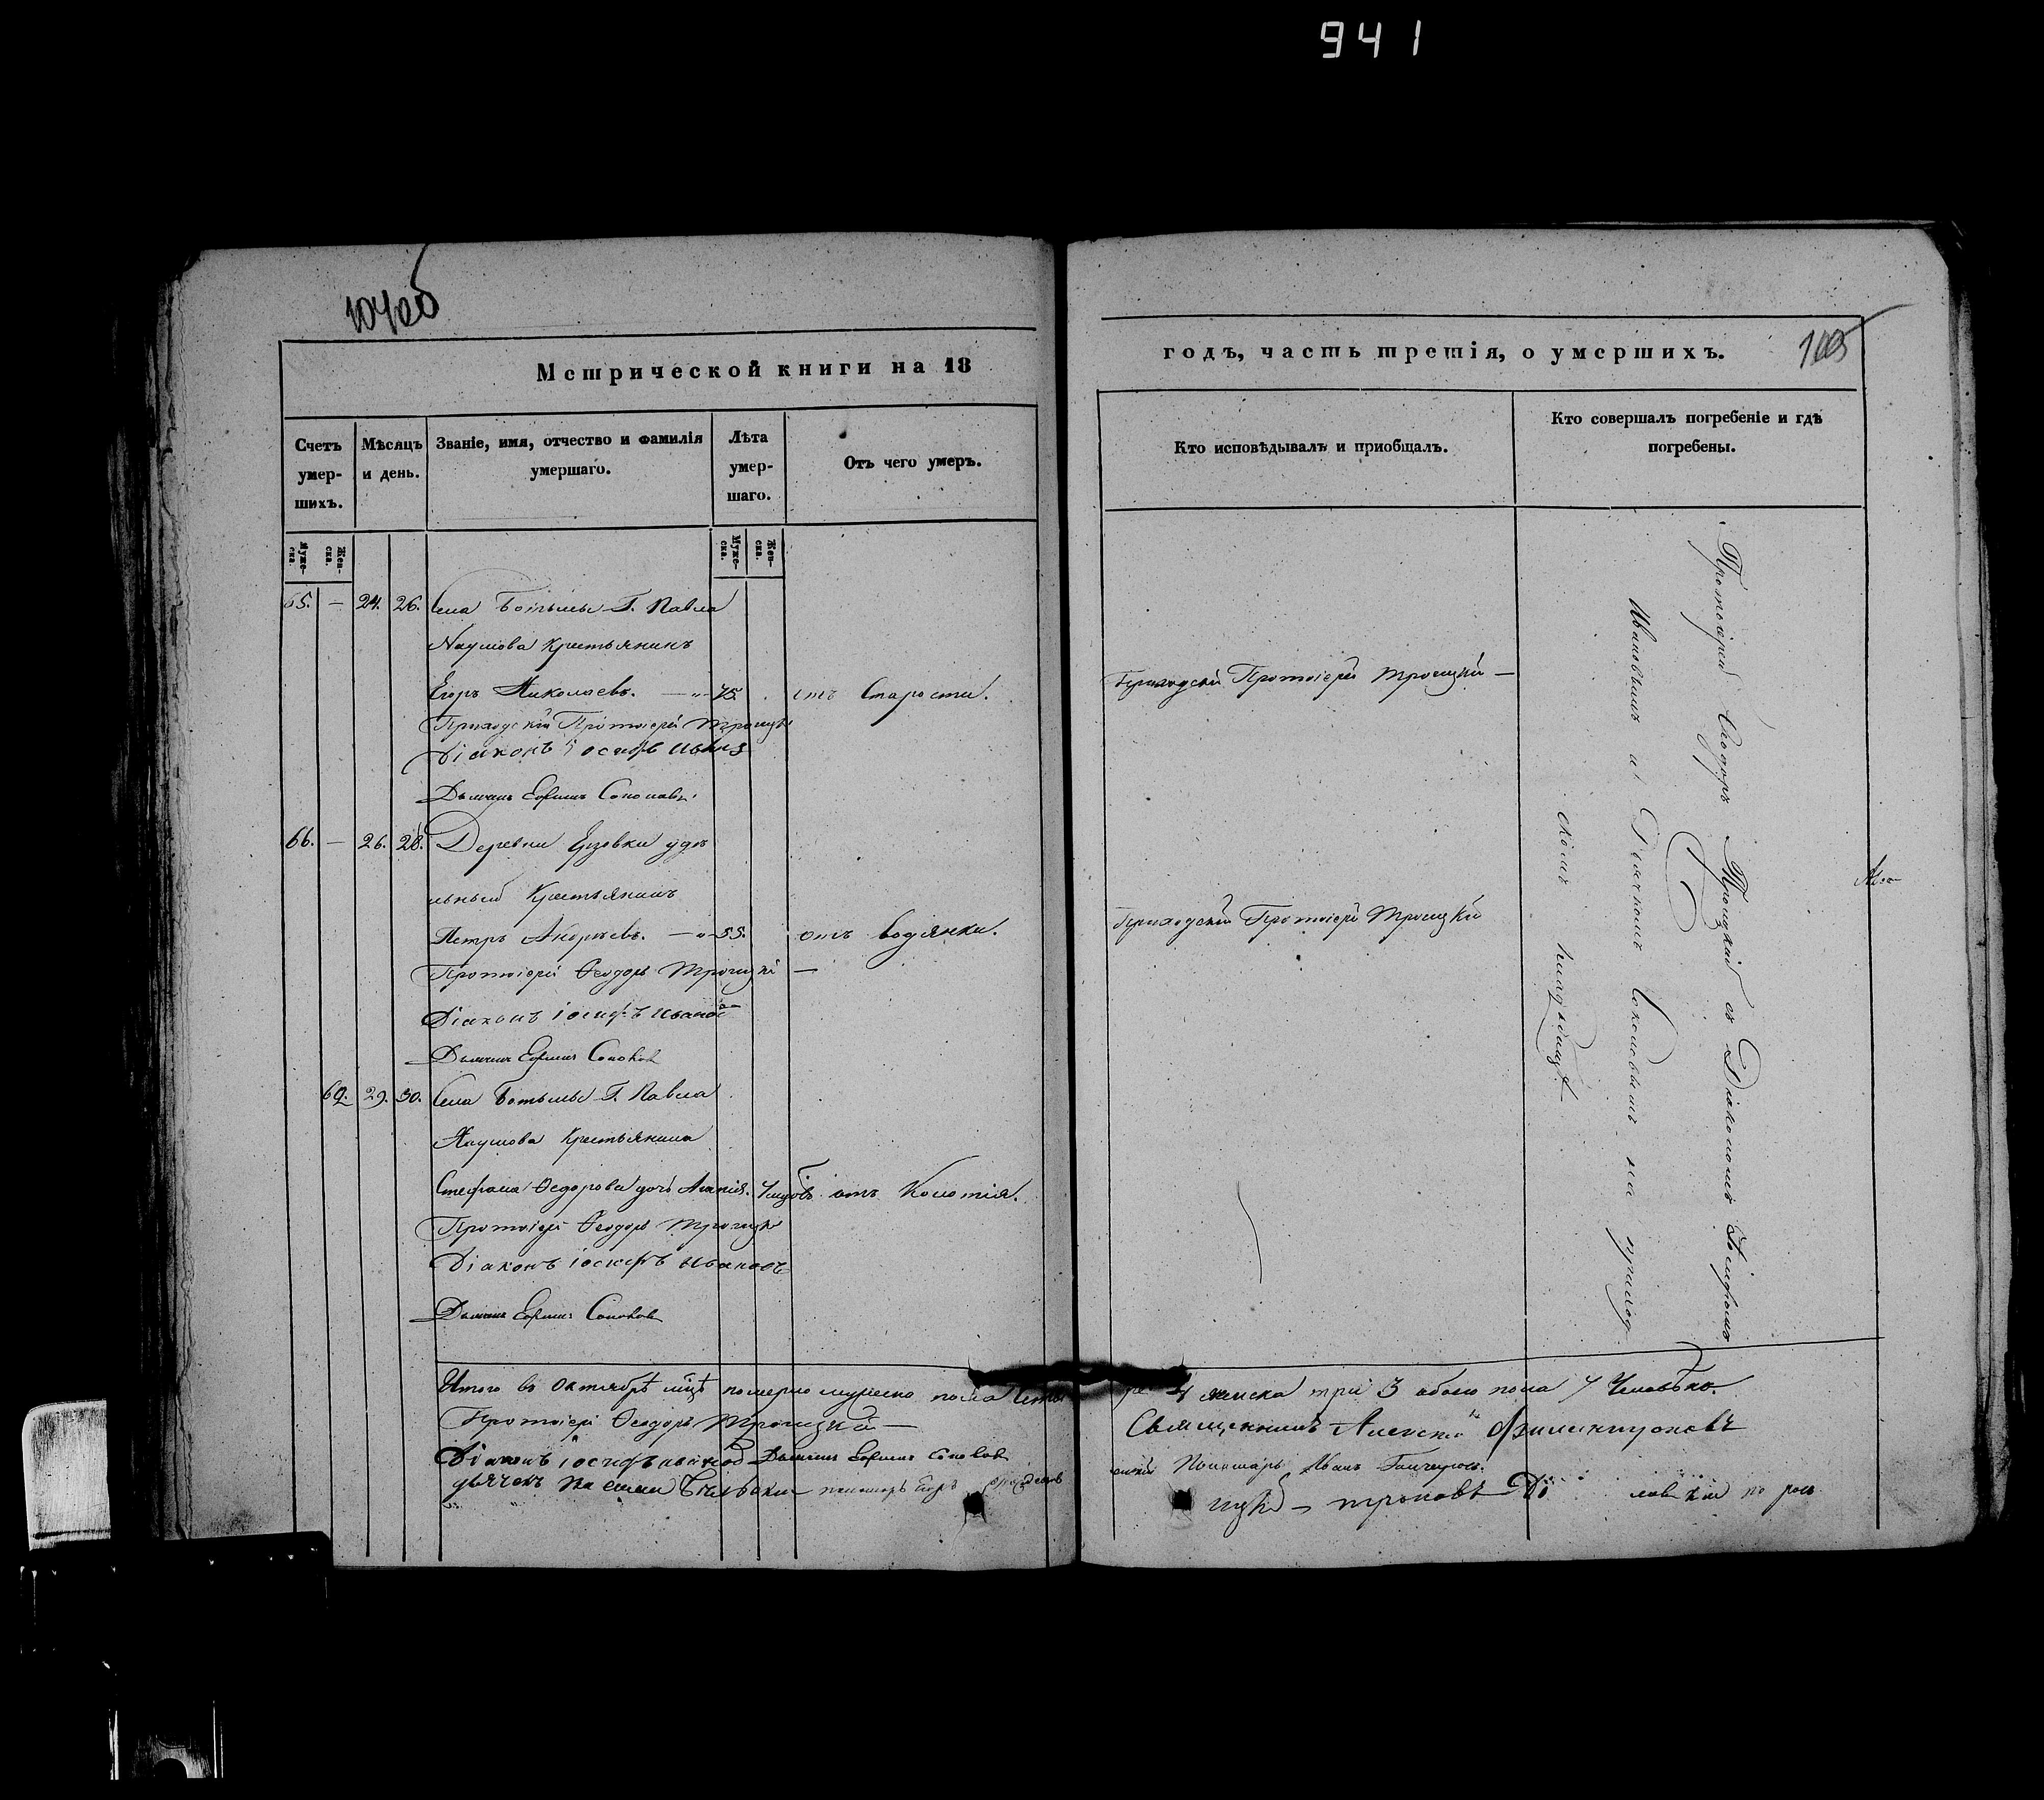 941
104об
105
Метрической книги на 18
годъ, часть третія, о умершихъ.
Счетъ умер-шихъ.
Мѣсяцъ и день.
Званіе, имя, отчество и фамилія умершаго.
Лѣта умер-шаго.
Отъ чего умеръ.
Кто исповѣдывалъ и приобщалъ.
Кто совершалъ погребеніе и гдѣ погребены.
Муже-ска.
Жен-ска.
Муже-ска.
Жен-ска.
65. — 24. 26. Села Ботьмы Г. Павла
Наумова Крестьянинъ
Егоръ Николаевъ. — 75. отъ Старости. Приходскій Протоіерей Троицкій —
Приходскій Протоіерей Троицкій
Діаконъ Іосифъ
Дьячекъ Ефимъ Соколовъ
66. — 26. 28. Деревни Ерзовки удѣ
льный Крестьянинъ
Петръ Андреевъ. — 55. отъ водянки. Приходскій Протоіерей Троицкій
Протоіерей Ѳеодоръ Троицкій —
Діаконъ Іосифъ Ивановъ
Дьячекъ Ефимъ Соколовъ
62. 29. 30. Села Ботьмы Г. Павла
Наумова Крестьянина
Стефана Ѳедорова дочь отъ Колотія.
Протоіерей Ѳеодоръ Троицкій
Діаконъ Іосифъ Ивановъ
Дьячекъ Ефимъ Соколовъ
Протоіерей Ѳеодоръ Троицкій съ Діакономъ Іосифомъ
Ивановымъ и Дьячкомъ Соколовымъ на приход
скомъ кладбищѣ
Итого въ Октябрѣ мцѣ померло мужеска пола четы
ре 4 женска три 3 обоего пола 7 Человѣкъ.
Протоіерей Ѳеодоръ Троицкій —
Священникъ Алексѣй
Діаконъ Іосифъ Ивановъ Дьячекъ Ефимъ Соколовъ
Пономарь Иванъ
дьячекъ пономарь Егоръ